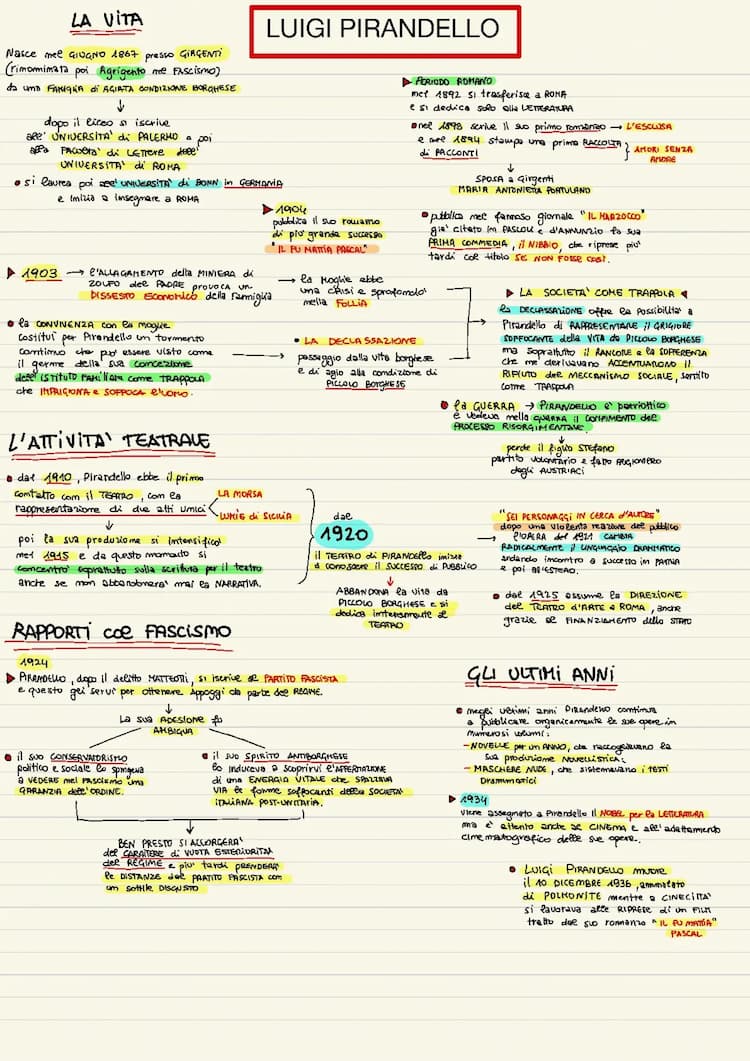 LUIGI PIRANDELLO
LA VITA
Nasce nel GIUGNO 1867 presso GIRGENTI
(rinominata poi Agrigento nel FASCISMO)
da una FAMIGLIA di AGIATA CONDIZIONE BORGHESE
dopo il liceo si iscrive
all' UNIVERSITÀ di PALERMO e poi
alla FACOLTÀ di LETTERE dell'
UNIVERSITÀ di ROMA
si laurea poi all'UNIVERSITÀ di BONN in GERMANIA
e inizia a insegnare a ROMA
PERIODO ROMANO
nel 1892 si trasferisce a ROMA
e si dedica solo alla LETTERATURA
nel 1893 scrive il suo primo romanzo → L'ESCLUSA
e nel 1894 stampa una prima RACCOLTA
di RACCONTI
AMORI SENZA
AMORE
SPOSA a Girgenti
MARIA ANTONIETTA PORTULANO
pubblica nel famoso giornale "IL MARZOCCO"
già citato in PASCOLI e D'ANNUNZIO la sua
PRIMA COMMEDIA, il NIBBIO, che riprese più
tardi col titolo SE NON FOSSE COSÌ.
1904
pubblica il suo romanzo
di più grande successo
"IL FU MATTIA PASCAL"
1903 → l'ALLAGAMENTO della MINIERA di
ZOLFO del PADRE provoca un
DISSESTO ECONOMICO della famiglia
→ la moglie ebbe
una crisi e sprofondò
nella FOLLIA
la CONVINENZA con la moglie
costituì per Pirandello un tormento
continuo che può essere visto come
il germe della sua concezione
dell'ISTITUTO FAMILIARE come TRAPPOLA
che IMPRIGIONA e SOFFOCA l'uomo.
LA DECLASSAZIONE
passaggio dalla vita borghese
e di agio alla condizione di
PICCOLO BORGHESE
LA SOCIETÀ COME TRAPPOLA
la DECLASSAZIONE offre la possibilità a
Pirandello di RAPPRESENTARE il GRIGIORE
SOFFOCANTE della VITA da PICCOLO BORGHESE
ma soprattutto il RANCORE e la SOFFERENZA
che ne derivavano ACCENTUARONO il
RIFIUTO del MECCANISMO SOCIALE, sentito
come TRAPPOLA
la GUERRA → PIRANDELLO è patriottico
e vedeva nella guerra il COMPIMENTO del
PROCESSO RISORGIMENTALE.
perde il figlio STEFANO
partito volontario e fatto PRIGIONIERO
dagli AUSTRIACI
L'ATTIVITÀ TEATRALE
dal 1910, Pirandello ebbe il primo
contatto con il TEATRO, con la
rappresentazione di due atti unici
LA MORSA
LUMIE di SICILIA
poi la sua produzione si intensificò
nel 1915 e da questo momento si
concentrò soprattutto sulla scrittura per il teatro
anche se non abbandonerà mai la NARRATIVA.
dal
1920
il TEATRO di PIRANDELLO iniziò
a conoscere il SUCCESSO di PUBBLICO
ABBANDONA la VITA da
PICCOLO BORGHESE e si
dedica interamente al
TEATRO
"SEI PERSONAGGI IN CERCA D'AUTORE"
dopo una violenta reazione del pubblico
l'OPERA del 1921 CAMBIA
RADICALMENTE il LINGUAGGIO DRAMMATICO
andando incontro a successo in PATRIA
e poi all'ESTERO.
dal 1925 assume la DIREZIONE
del TEATRO D'ARTE a ROMA, anche
grazie al FINANZIAMENTO dello STATO
RAPPORTI col FASCISMO
1924
PIRANDELLO, dopo il delitto MATTEOTTI, si iscrive al PARTITO FASCISTA
e questo gli servì per ottenere appoggi da parte del REGIME.
La sua ADESIONE fu
AMBIGUA
il suo CONSERVATORISMO
politico e sociale lo spingeva
a VEDERE nel FASCISMO una
GARANZIA dell'ORDINE.
il suo SPIRITO ANTIBORGHESE
lo induceva a scoprirvi l'AFFERMAZIONE
di una ENERGIA VITALE che SPAZZAVA
VIA le forme soffocanti della SOCIETÀ
ITALIANA POST-UNITARIA.
BEN PRESTO SI ACCORGERÀ
del CARATTERE di VUOTA ESTERIORITÀ
del REGIME e più tardi PRENDERÀ
le DISTANZE dal PARTITO FASCISTA con
un sottile DISGUSTO
GLI ULTIMI ANNI
negli ultimi anni Pirandello continua
a pubblicare organicamente le sue opere in
numerosi volumi:
- NOVELLE per un ANNO, che raccoglievano la
sua produzione Novellistica;
- MASCHERE NUDE, che sistemavano i testi
Drammatici
1934
viene assegnato a Pirandello il NOBEL per la LETTERATURA
ma è attento anche al CINEMA e all'adattamento
cinematografico delle sue opere.
LUIGI PIRANDELLO MUORE
il 10 DICEMBRE 1936, ammalato
di POLMONITE mentre a CINECITTÀ
si lavorava alle RIPRESE di un FILM
tratto dal suo romanzo "IL FU MATTIA
PASCAL"